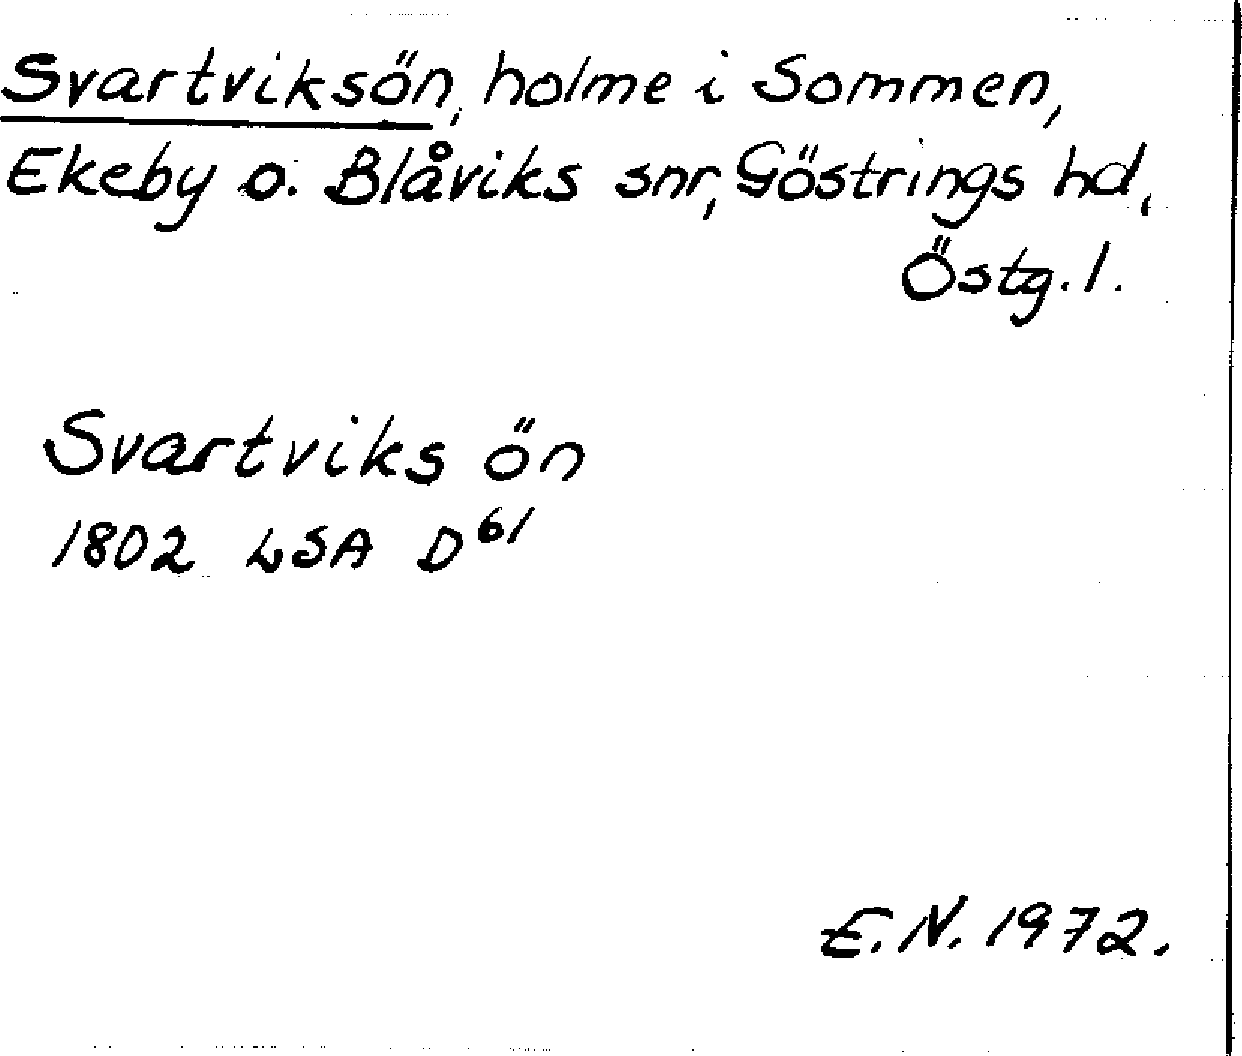 Svartviksön, holme i Sommen,
Ekeby o. Blåviks snr, Göstrings hd,
Östg. l.
Svartviks ön
1802 LSA D 61
E.N. 1972.